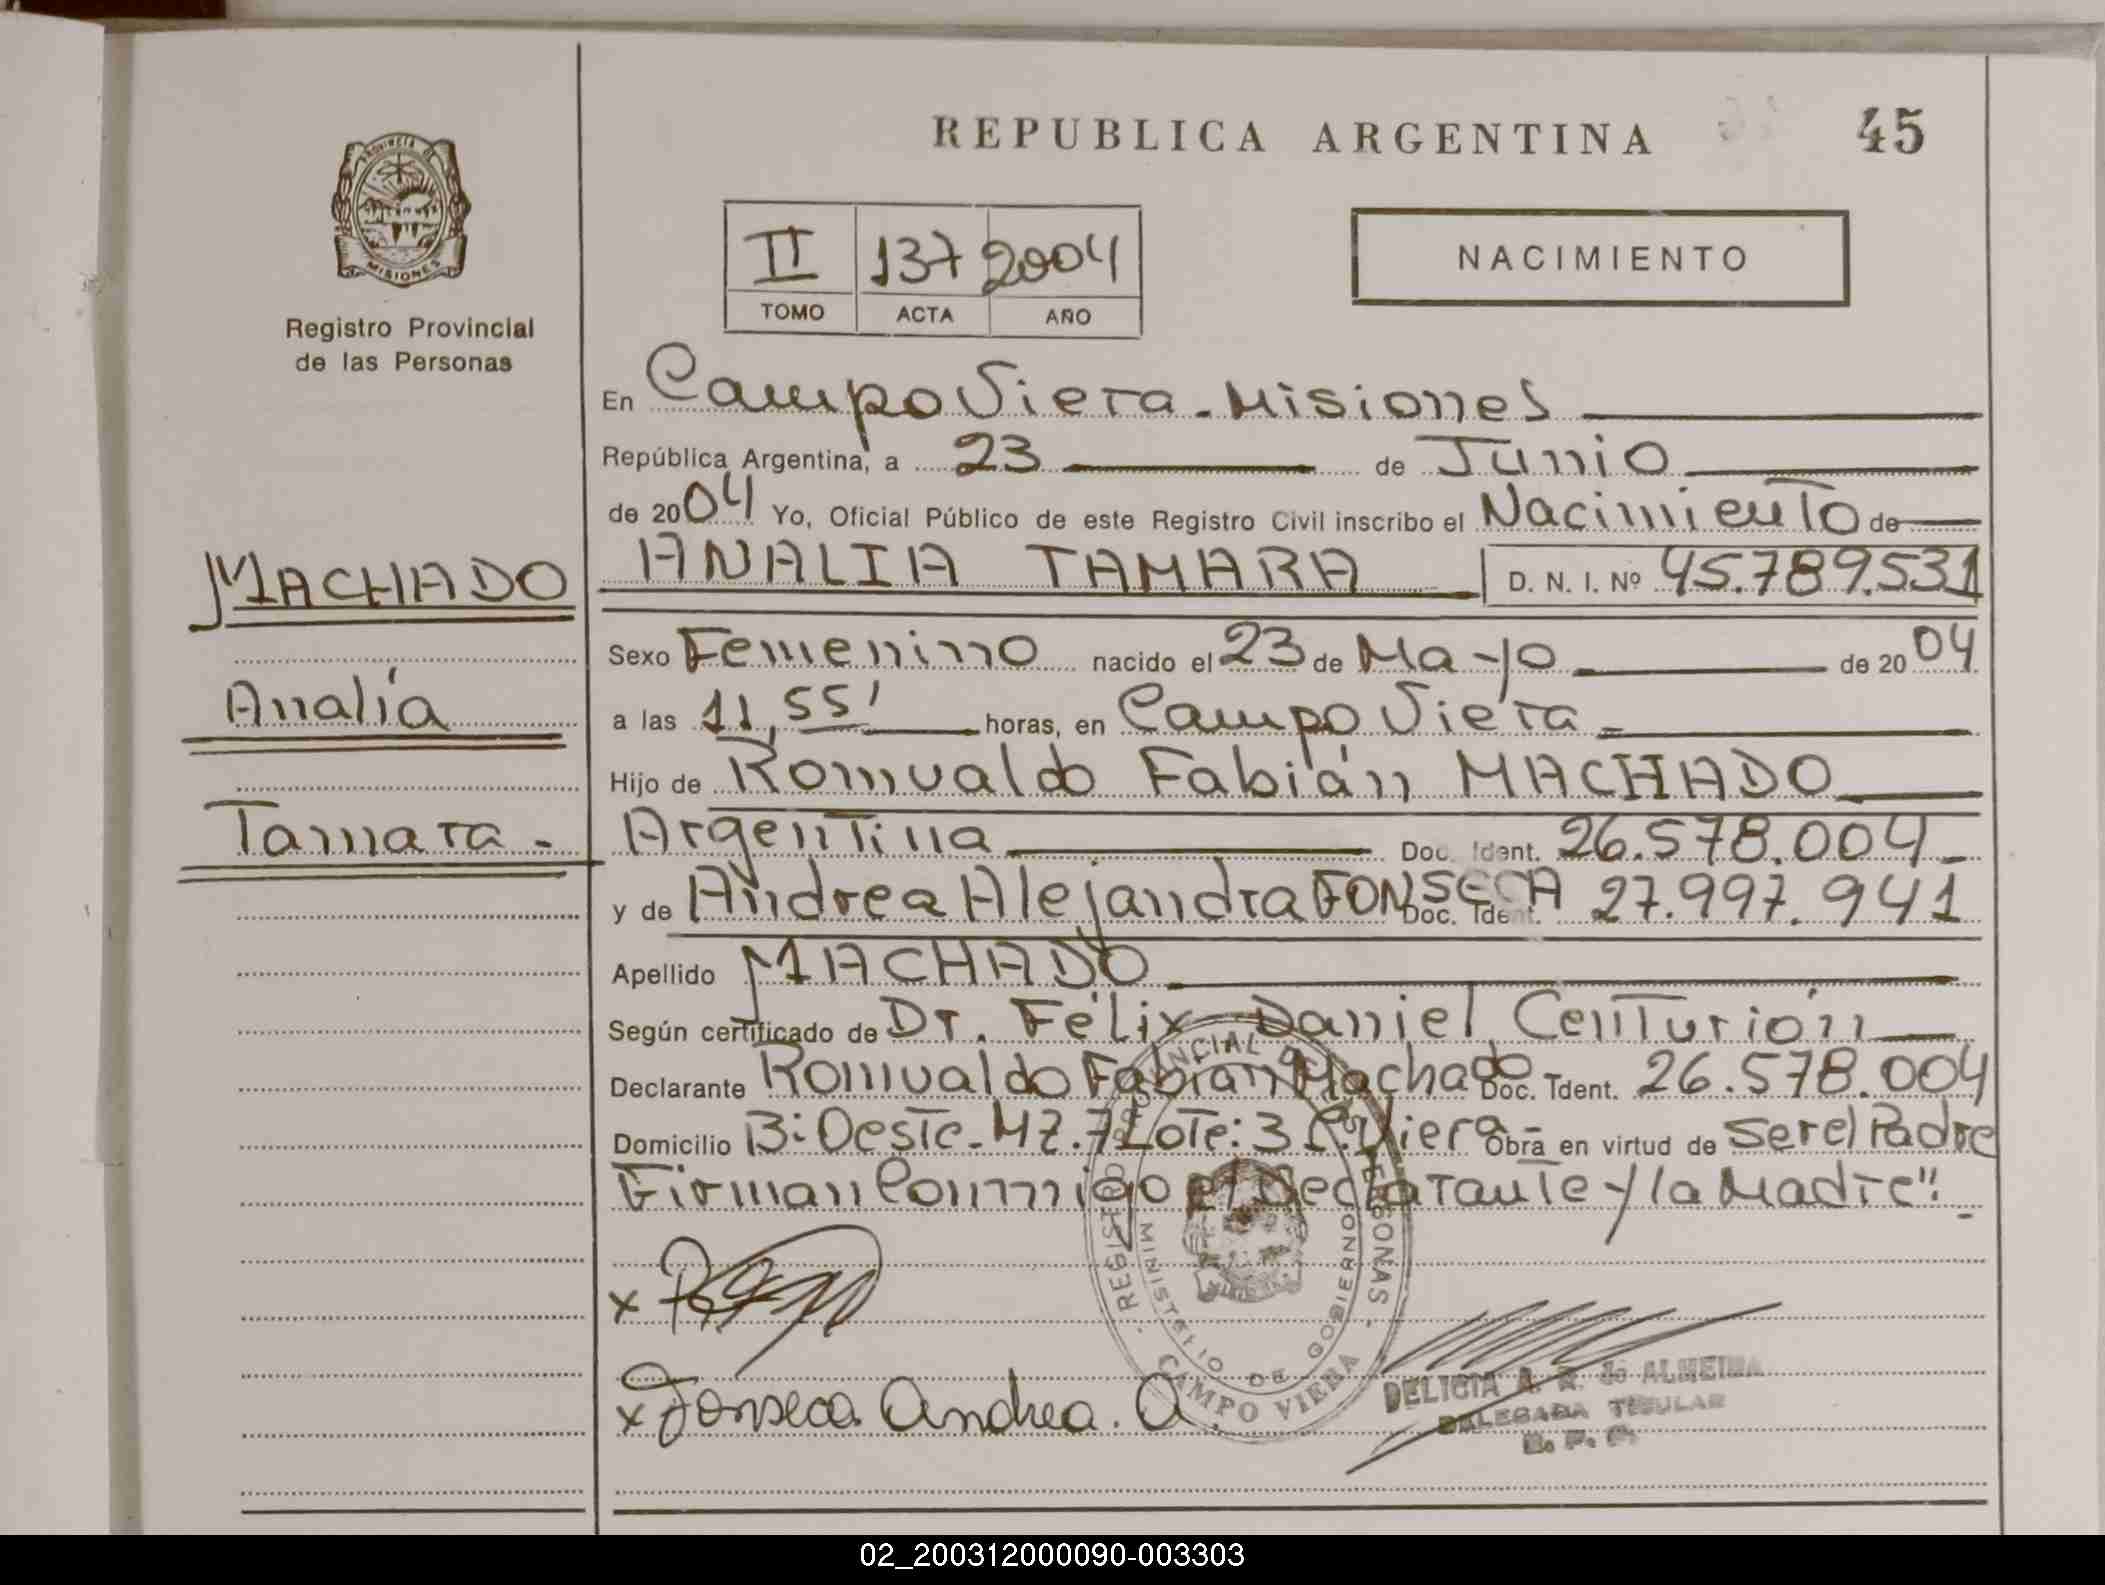 REPUBLICA ARGENTINA 45
PROVINCIA DE
MISIONES
Registro Provincial
de las Personas
II 137 2004
TOMO ACTA AÑO
NACIMIENTO
En Campo Viera - Misiones
República Argentina, a 23 de Junio
de 2004 Yo, Oficial Público de este Registro Civil inscribo el Nacimiento de
MACHADO
Analía
Tamara -
ANALIA TAMARA D. N. I. Nº 45.789.531
Sexo Femenino nacido el 23 de Mayo de 2004
a las 11,55' horas, en Campo Viera
Hijo de Romualdo Fabián MACHADO
Argentina Doc. Ident. 26.578.004 -
y de Andrea Alejandra FONSECA Doc. Ident. 27.997.941
Apellido MACHADO
Según certificado de Dr. Félix Daniel Centurión
Declarante Romualdo Fabián Machado Doc. Ident. 26.578.004
Domicilio B: Oeste - Mz. 7 Lote: 3 C. Viera Obra en virtud de ser el Padre
Firman Conmigo el Declarante y la Madre".
x
x Fonseca Andrea. A.
REGISTRO PROVINCIAL DE LAS PERSONAS
MINISTERIO DE GOBIERNO
CAMPO VIERA
DELICIA A. R. de ALMEIDA
DELEGADA TITULAR
R. P. P.
02_200312000090-003303